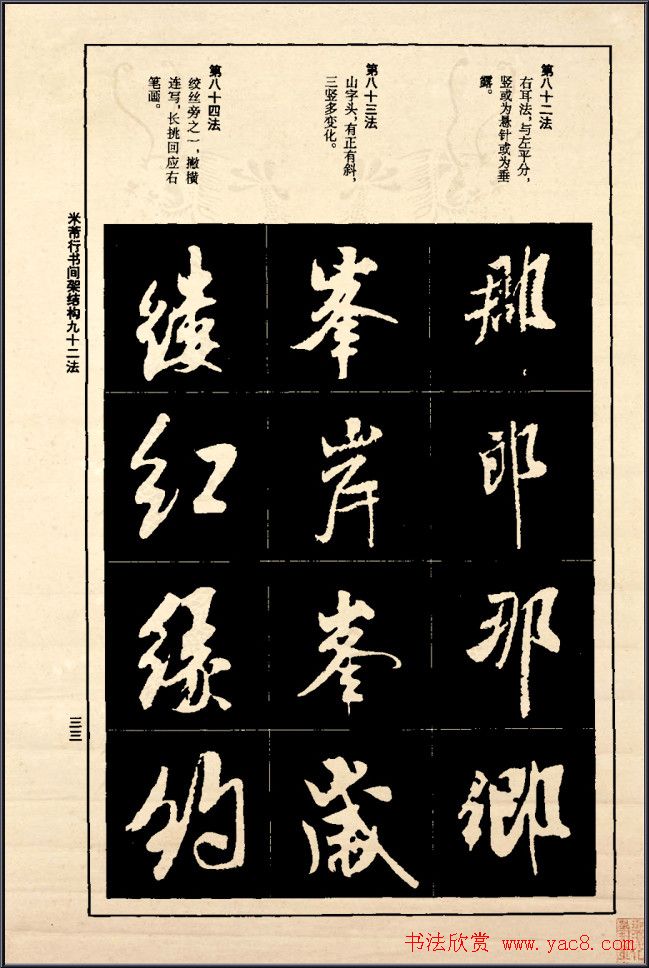 第八十二法
右耳法，与左平分，
竖或为悬针或为垂
露。
郎
那
鄉
第八十三法
山字头，有正有斜，
三竖多变化。
峯
岸
峯
歲
第八十四法
绞丝旁之一，撇横
连写，长挑回应右
笔画。
紅
緣
約
米芾行书间架结构九十二法
三三
书法欣赏 www.yac8.com